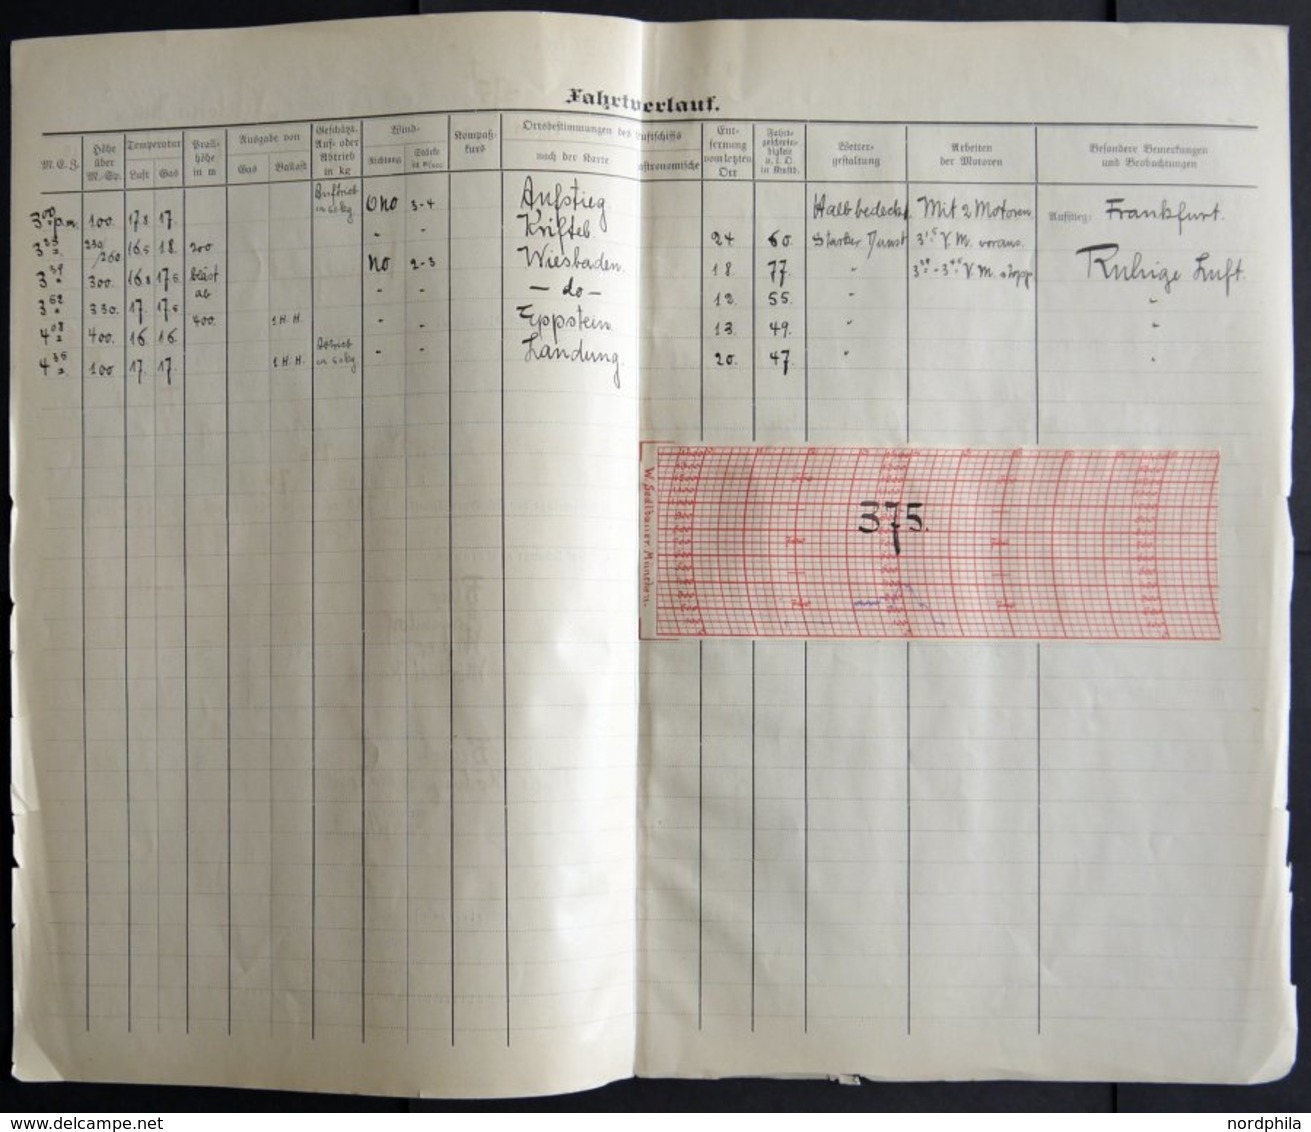 Fahrtverlauf.
M.E.Z. Höhe über M.-Sp. Temperatur Luft Gas Prallhöhe in m Ausgabe von Gas Ballast Geschätzt. Auf- oder Abtrieb in kg Wind- Richtung Stärke in m/sec Kompaßkurs Ortsbestimmungen des Luftschiffs nach der Karte astronomische Entfernung vom letzten Ort Fahrtgeschwindigkeit Wettergestaltung Arbeiten der Motoren Besondere Bemerkungen und Beobachtungen
3⁰⁰ p.m. 100. 17.8 17. Auftrieb in 60 kg ONO 3-4 Aufstieg. Halbbedeckt. Mit 2 Motoren. Aufstieg: Frankfurt.
230/260 16.5 18. 200 " " Kriftel. 24 60. Starker Dunst
3³⁹ 300. 16.8 17.5 bläst ab NO 2-3 Wiesbaden. 18. 77. " Ruhige Luft.
3⁵² 330. 17. 17.5 " " — do — 12. 55. " "
4⁰⁸ 400. 16. 16. 400. 1 H.H. " " Eppstein. 13. 49. " "
4³⁵ 100 17. 17. 1 H.H. " " Landung. 20. 47. " "
375.
W. Sedlbauer, München.
www.delcampe.net
nordphila